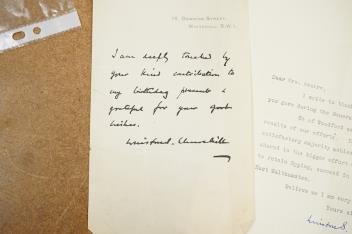 10, Downing Street,
Whitehall, S.W.1.
I am deeply touched by
your kind contribution to
my birthday present &
grateful for your good
wishes.
Winston S. Churchill
Dear Mrs.
I write to thank
you gave during the General
of Woodford
results of our efforts.
satisfactory majority
shared in the bigger effort
to retain Epping, succeed in
East Walthamstow.
Believe me I am very
Yours
Winston S.